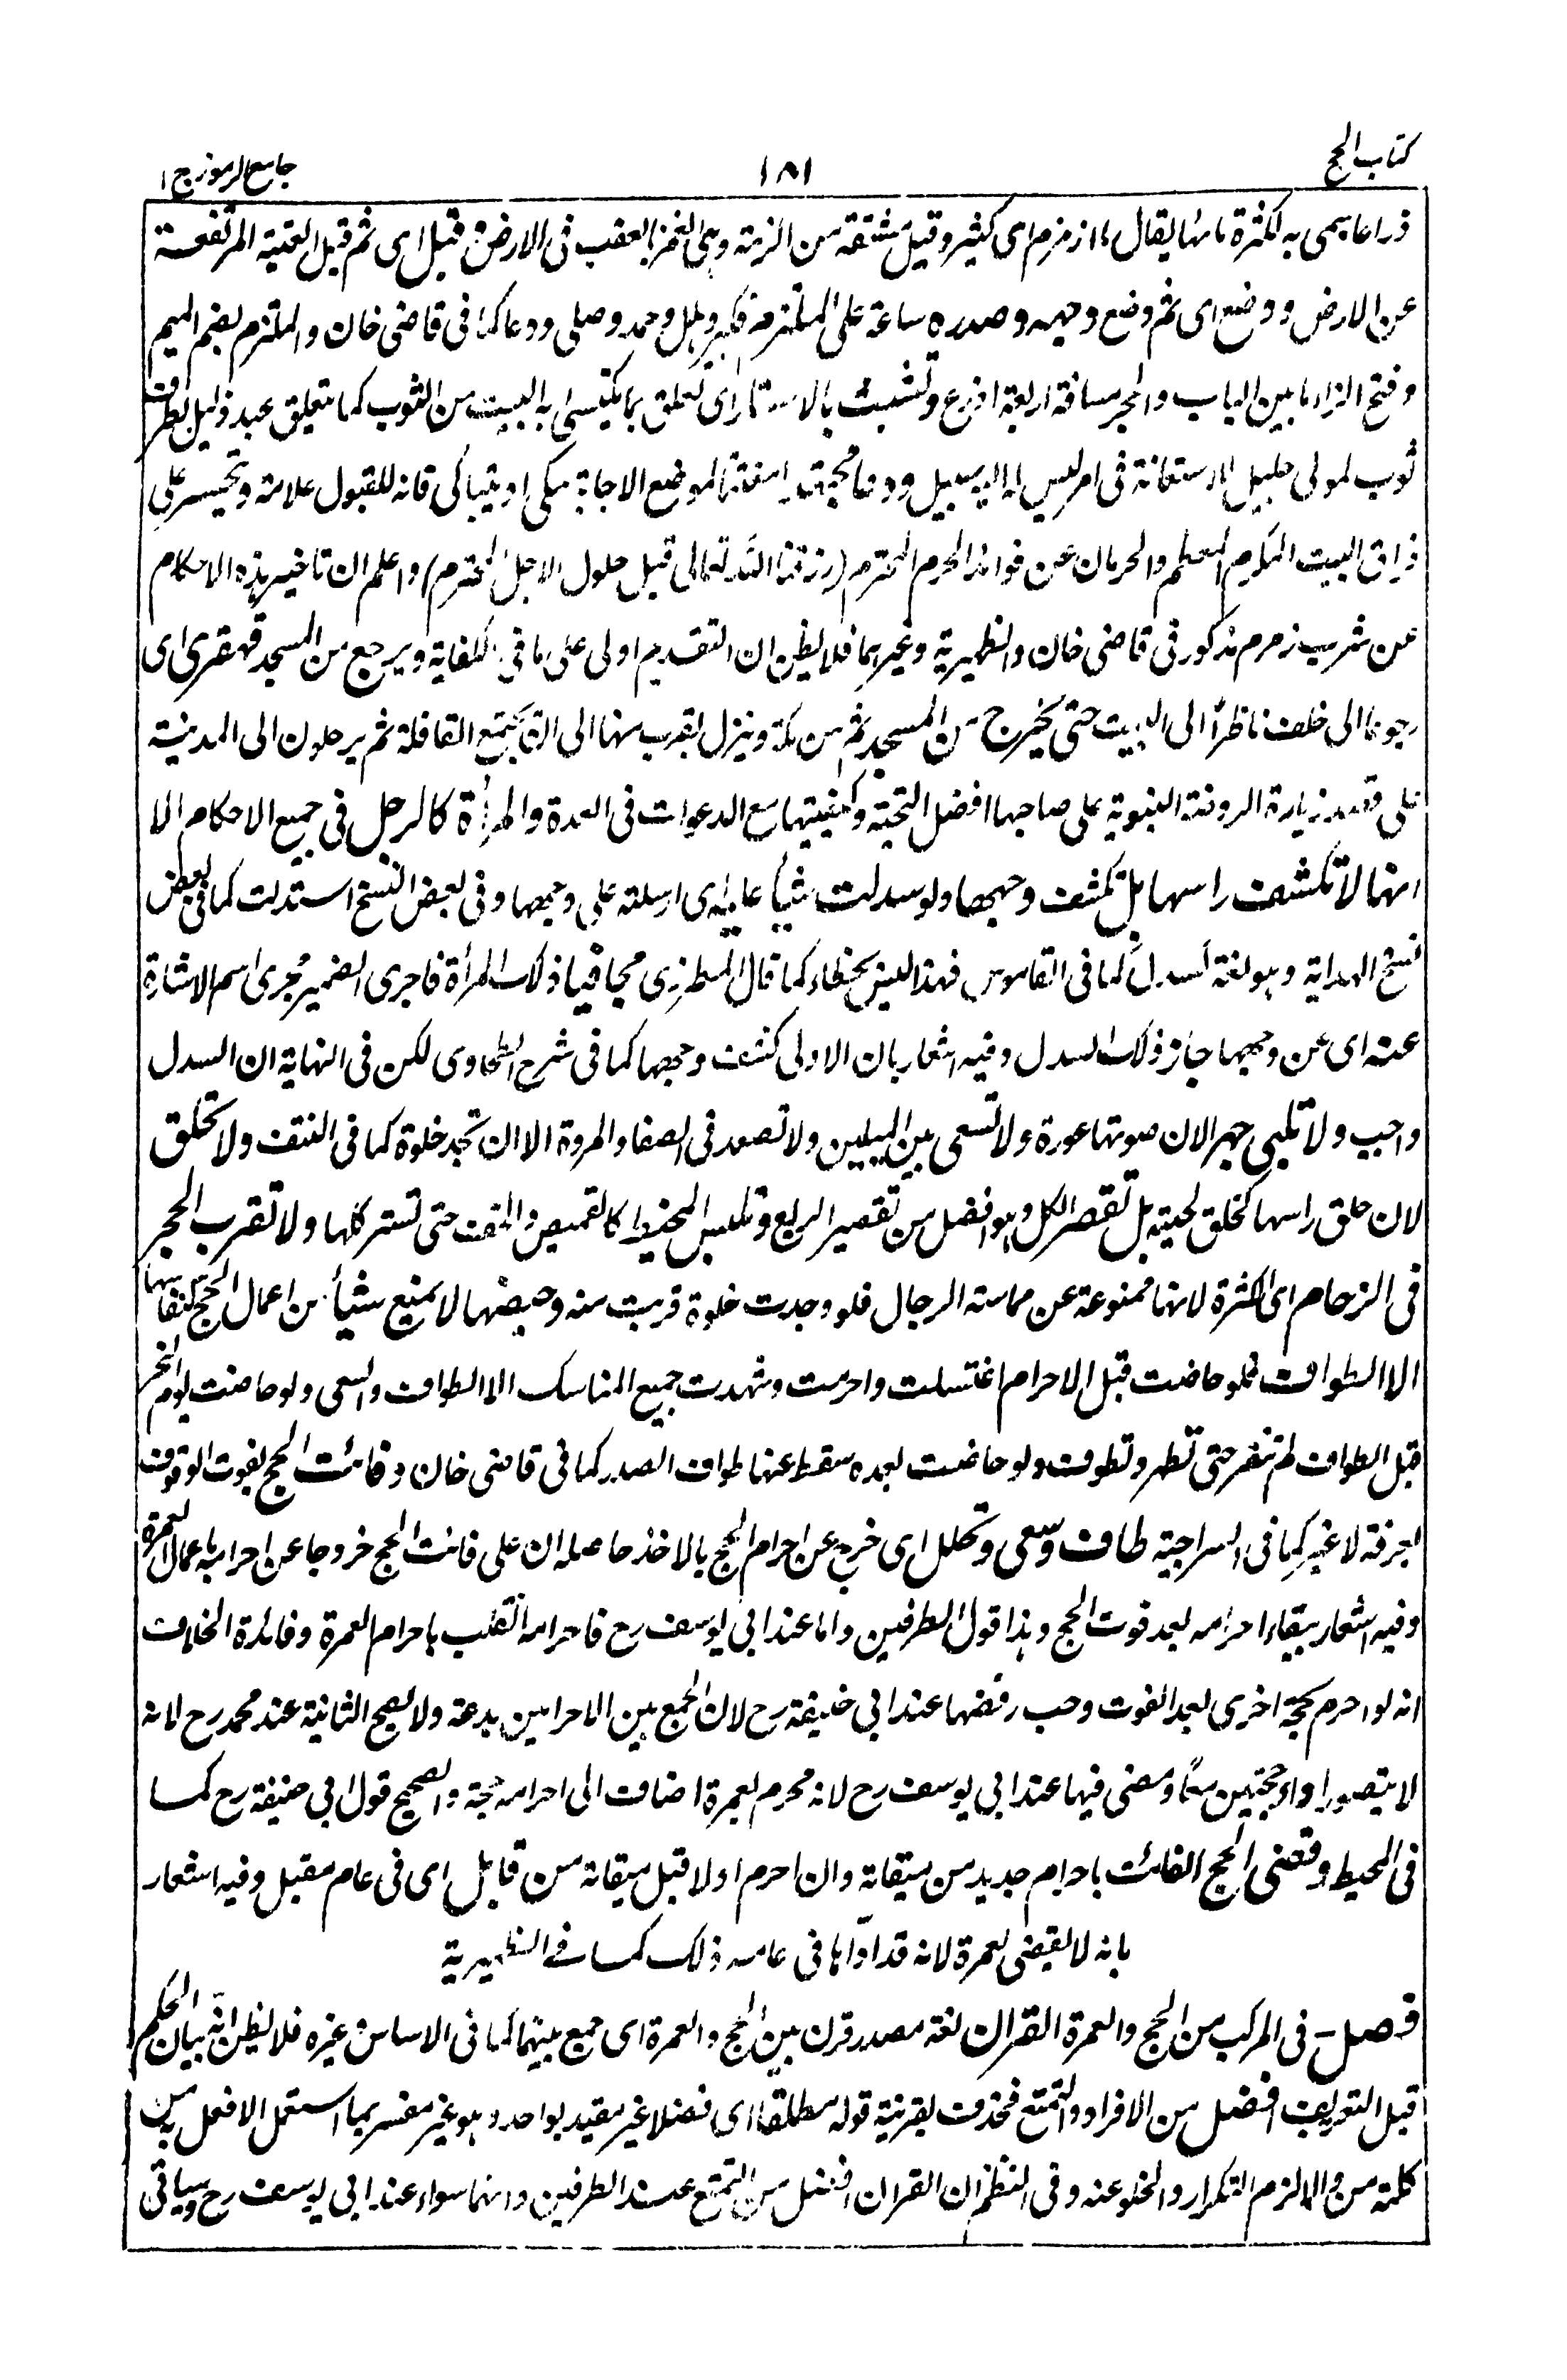 كتاب الحج
١٨١
جامع الرموز ج ١
ذراعا يسمى به لكثرة مائها يقال ماء زمزم اى كثير وقيل مشتقة من الزمزمة وهى الغمز بالعقب فى الارض وقبل اى ثم قبل العتبة المرتفعة
عن الارض ووضع اى ثم وضع وجهه وصدره ساعة على الملتزم فكبر وهلل وحمد وصلى ودعا كما فى قاضى خان والملتزم بضم الميم
وفتح الزاء ما بين الباب والحجر مسافة اربعة اذرع وتشبث بالاستار اى تعلق بما يكتسى به البيت من الثوب كما يتعلق عبد ذليل بطرف
ثوب لمولى جليل للاستعانة فى امر ليس له اليه سبيل ودعا مجتهدا لموضع الاجابة يبكى او يتباكى فانه للقبول علامة ويتحسر على
فراق البيت المكرم المعظم والحرمان عن فوائد الحرم المحترم (رزقنا الله تعالى قبل حلول الاجل المحترم) واعلم ان تاخير هذه الاحكام
عن شرب زمزم مذكور فى قاضى خان والظهيرية وغيرهما فلا يظن ان التقديم اولى على ما فى الكفاية ويرجع من المسجد قهقرى اى
رجوعا الى خلف ناظراً الى البيت حتى يخرج من المسجد ثم من مكة وينزل بقرب منها الى ان يجتمع القافلة ثم يرحلون الى المدينة
على قصد زيارة الروضة النبوية على صاحبها افضل التحية وكيفيتها مع الدعوات فى العدة والمرأة كالرجل فى جميع الاحكام الا
انها لا تكشف راسها بل تكشف وجهها ولو سدلت شيأ عليه اى ارسلته على وجهها وفى بعض النسخ استدلت كما فى بعض
نسخ الهداية وهو لغة اسدل كما فى القاموس فهذا ليس بخطاء كما قال المطرزى مجافيا ذلك المرأة فاجرى الضمير مجرى اسم الاشارة
عنه اى عن وجهها جاز ذلك السدل وفيه اشعار بان الاولى كشف وجهها كما فى شرح الطحاوى لكن فى النهاية ان السدل
واجب ولا تلبى جهرا لان صوتها عورة ولا تسعى بين الميلين ولا تصعد فى الصفا والمروة الا ان تجد خلوة كما فى النتف ولا تحلق
لان حلق راسها كحلق لحيته بل تقصر الكل وهو افضل من تقصير الربع وتلبس المخيط كالقميص والخف حتى تستر كلها ولا تقرب الحجر
فى الزحام اى الكثرة لانها ممنوعة عن مماسة الرجال فلو وجدت خلوة قربت منه وحيضها لا يمنع شيأ من اعمال الحج كنفاسها
الا الطواف فلو حاضت قبل الاحرام اغتسلت واحرمت وشهدت جميع المناسك الا الطواف والسعى ولو حاضت يوم النحر
قبل الطواف لم تنفر حتى تطهر وتطوف ولو حاضت بعده سقط عنها طواف الصدر كما فى قاضى خان وفائت الحج بفوت الوقوف
بعرفة لا غير كما فى السراجية طاف وسعى وتحلل اى خرج عن احرام الحج بالاخذ حاصله ان على فائت الحج خروجا عن احرامه باعمال العمرة
وفيه اشعار ببقاء احرامه بعد فوت الحج وهذا قول الطرفين واما عند ابى يوسف رح فاحرامه انقلب باحرام العمرة وفائدة الخلاف
انه لو احرم بحجة اخرى بعد الفوت وجب رفضها عند ابى حنيفة رح لان الجمع بين الاحرامين بدعة ولا يصح الثانية عند محمد رح لانه
لا يتصور اداء حجتين معاً ومضى فيها عند ابى يوسف رح لانه محرم بعمرة اضاف الى احرامه حجة والصحيح قول ابى حنيفة رح كما
فى المحيط وقضى الحج الفائت باحرام جديد من ميقاته وان احرم اولا قبل ميقاته من قابل اى فى عام مقبل وفيه اشعار
بانه لا يقضى لعمرة لانه قد اداها فى عامه ذلك كما فى الظهيرية
فصل - فى المركب من الحج والعمرة القران لغة مصدر قرن بين الحج والعمرة اى جمع بينهما كما فى الاساس وغيره فلا يظن انه بيان الحكم
قبل التعريف افضل من الافراد والتمتع فحذف بقرينة قوله مطلقا اى فضلا غير مقيد بواحد وهو غير مفسر بما استعمل الافعل به من
كلمة من والا لزم التكرار والخلو عنه وفى النظم ان القران افضل من التمتع عند الطرفين وانهما سواء عند ابى يوسف رح وسياتى